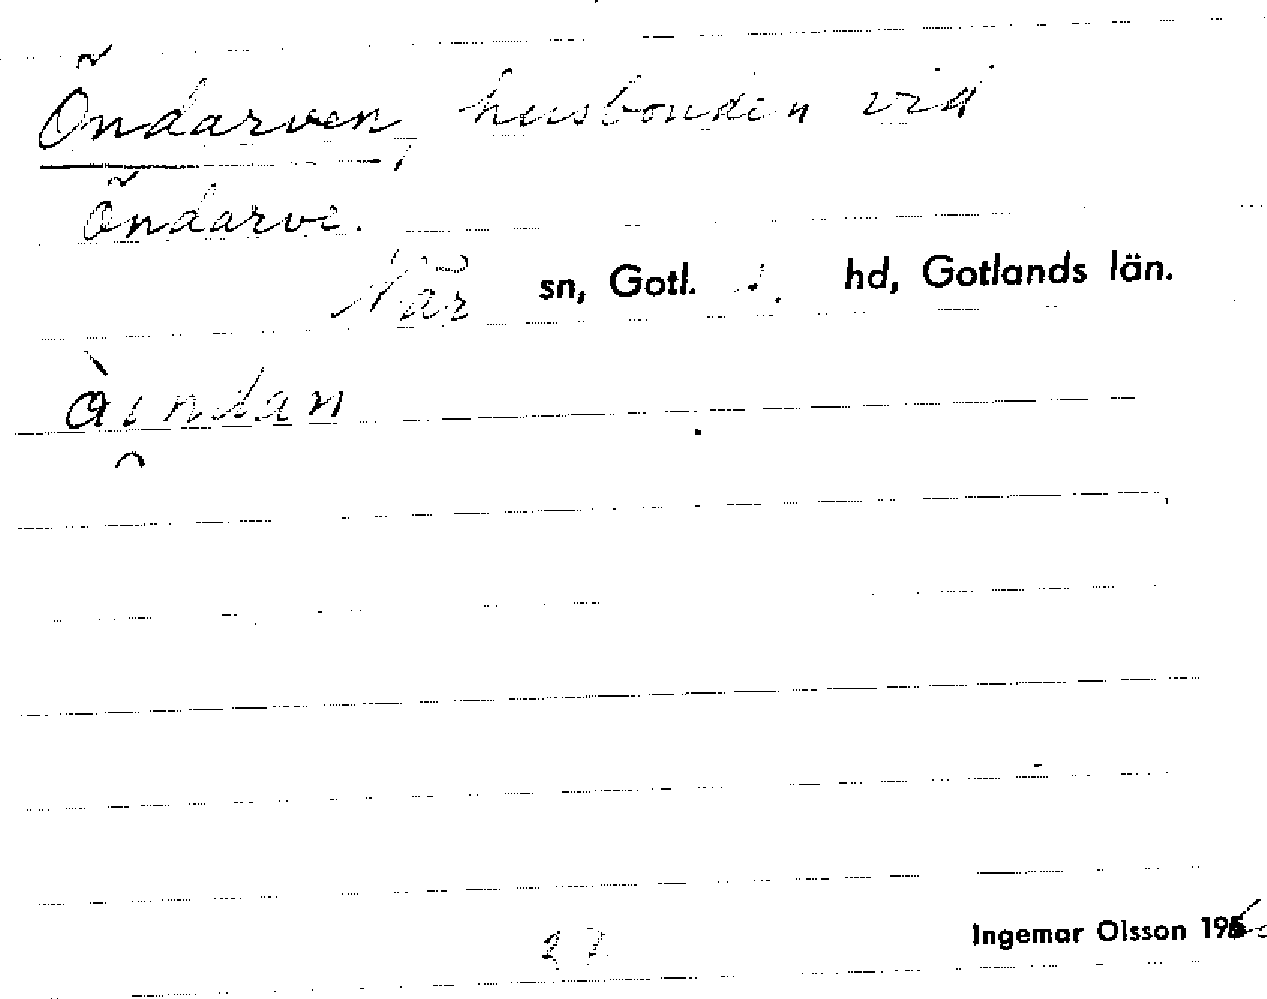 Öndarven, husbonden vid
Öndarve.
När sn, Gotl. s. hd, Gotlands län.
àindan
27
Ingemar Olsson 195